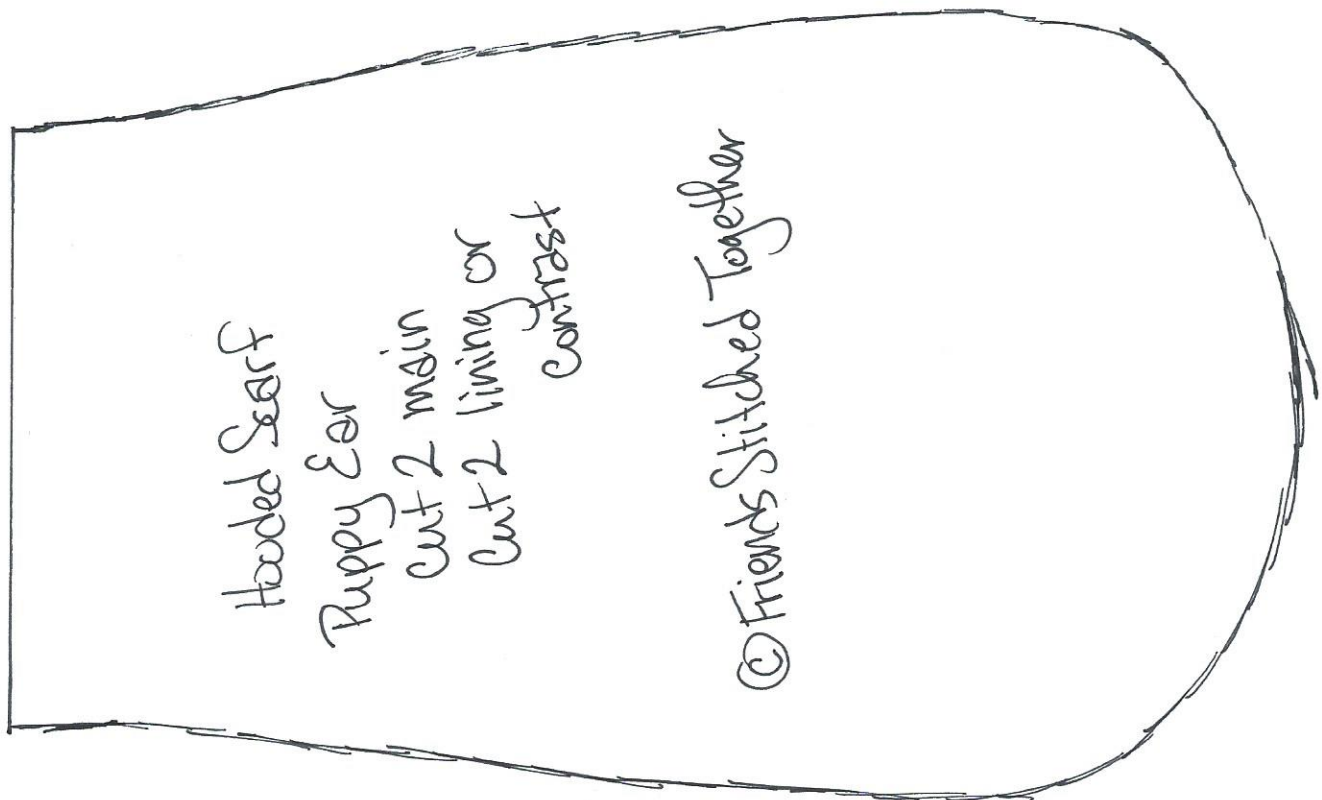 Hooded Scarf
Puppy Ear
Cut 2 main
Cut 2 lining or
contrast
© Friends Stitched Together